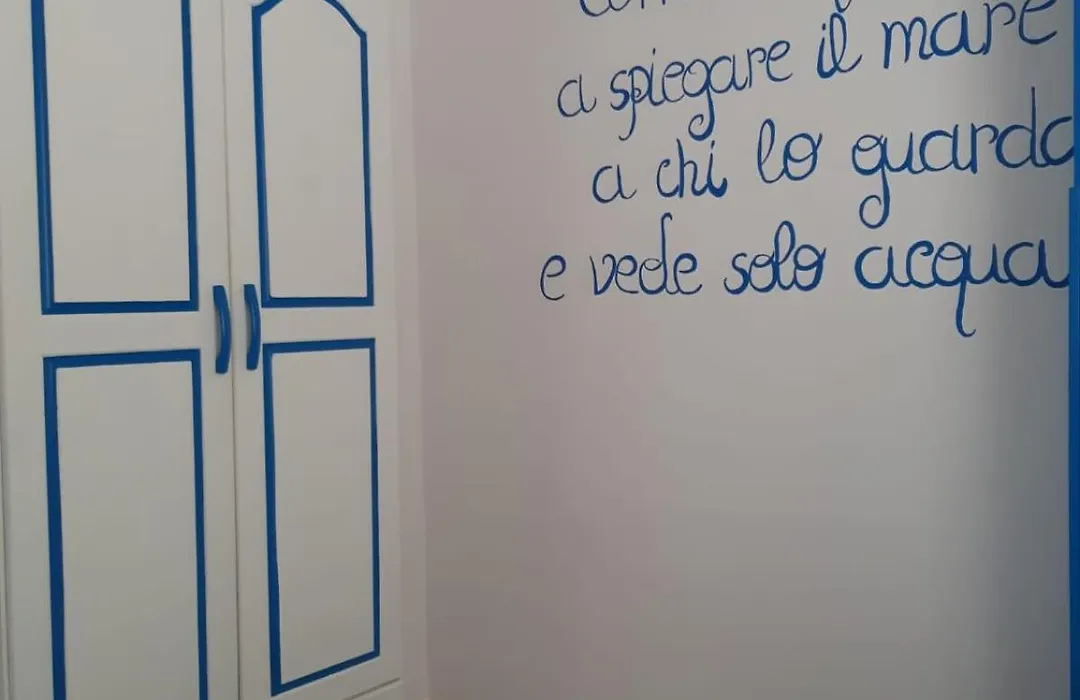 a spiegare il mare
a chi lo guarda
e vede solo acqua